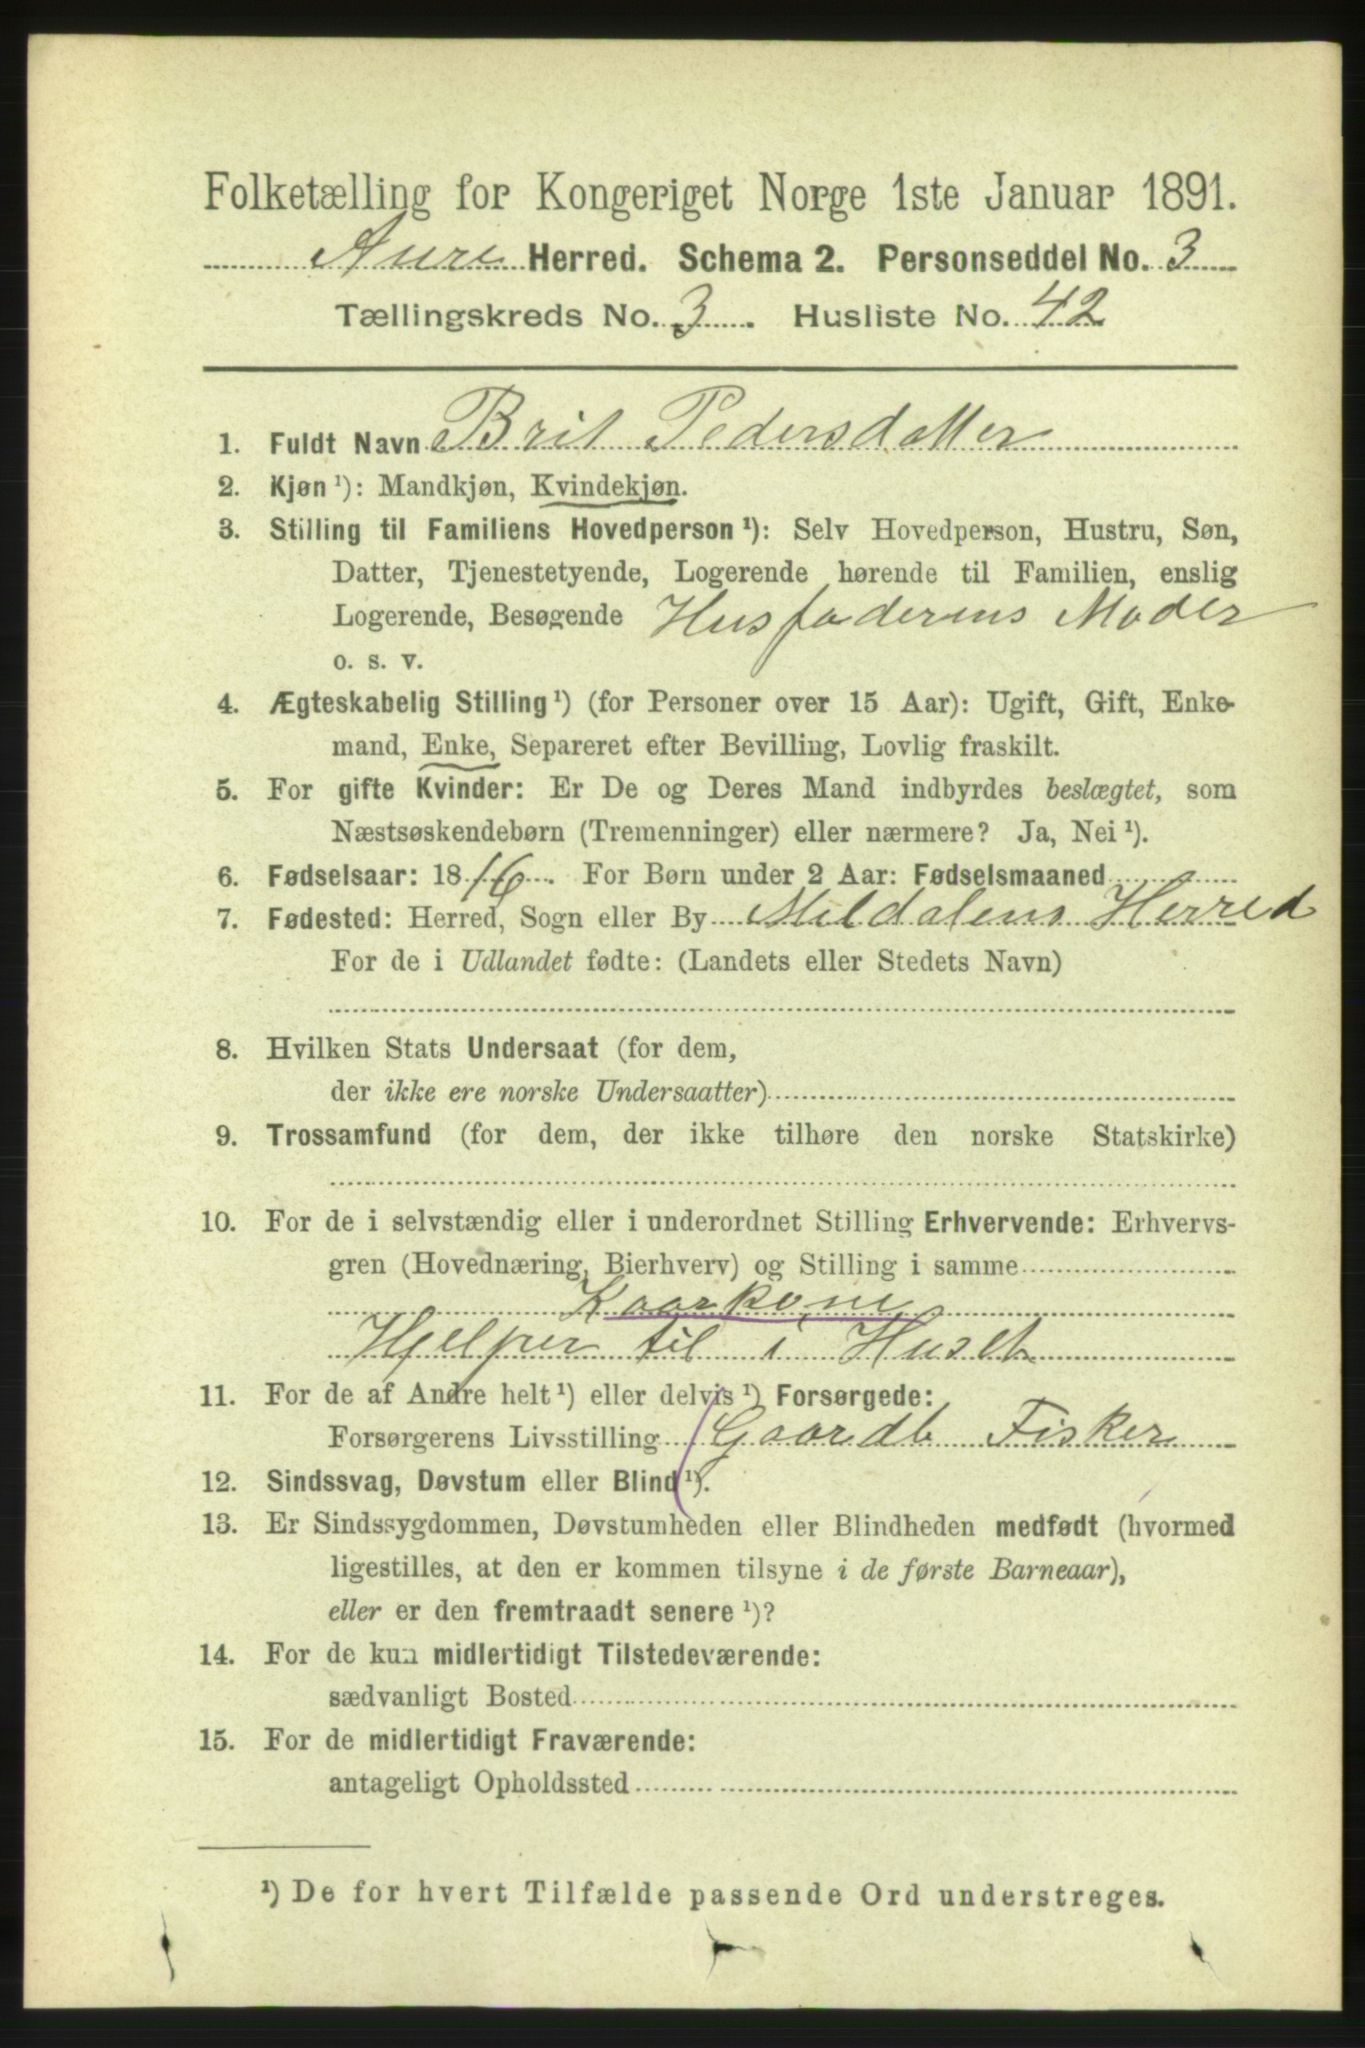 Folketælling for Kongeriget Norge 1ste Januar 1891.
Aure Herred. Schema 2. Personseddel No. 3
Tællingskreds No. 3. Husliste No. 42
1. Fuldt Navn Brit Pedersdatter
2. Kjøn ¹): Mandkjøn, Kvindekjøn.
3. Stilling til Familiens Hovedperson ¹): Selv Hovedperson, Hustru, Søn,
Datter, Tjenestetyende, Logerende hørende til Familien, enslig
Logerende, Besøgende Husfaderens Moder
o. s. v.
4. Ægteskabelig Stilling ¹) (for Personer over 15 Aar): Ugift, Gift, Enke-
mand, Enke, Separeret efter Bevilling, Lovlig fraskilt.
5. For gifte Kvinder: Er De og Deres Mand indbyrdes beslægtet, som
Næstsøskendebørn (Tremenninger) eller nærmere? Ja, Nei ¹).
6. Fødselsaar: 1816. For Børn under 2 Aar: Fødselsmaaned
7. Fødested: Herred, Sogn eller By Meldalens Herred
For de i Udlandet fødte: (Landets eller Stedets Navn)
8. Hvilken Stats Undersaat (for dem,
der ikke ere norske Undersaatter)
9. Trossamfund (for dem, der ikke tilhøre den norske Statskirke)
10. For de i selvstændig eller i underordnet Stilling Erhvervende: Erhvervs-
gren (Hovednæring, Bierhverv) og Stilling i samme
Kaarkone
Hjelper til i Huset
11. For de af Andre helt ¹) eller delvis ¹) Forsørgede:
Forsørgerens Livsstilling (Gaardb Fisker
12. Sindssvag, Døvstum eller Blind ¹).
13. Er Sindssygdommen, Døvstumheden eller Blindheden medfødt (hvormed
ligestilles, at den er kommen tilsyne i de første Barneaar),
eller er den fremtraadt senere ¹)?
14. For de kun midlertidigt Tilstedeværende:
sædvanligt Bosted
15. For de midlertidigt Fraværende:
antageligt Opholdssted
¹) De for hvert Tilfælde passende Ord understreges.